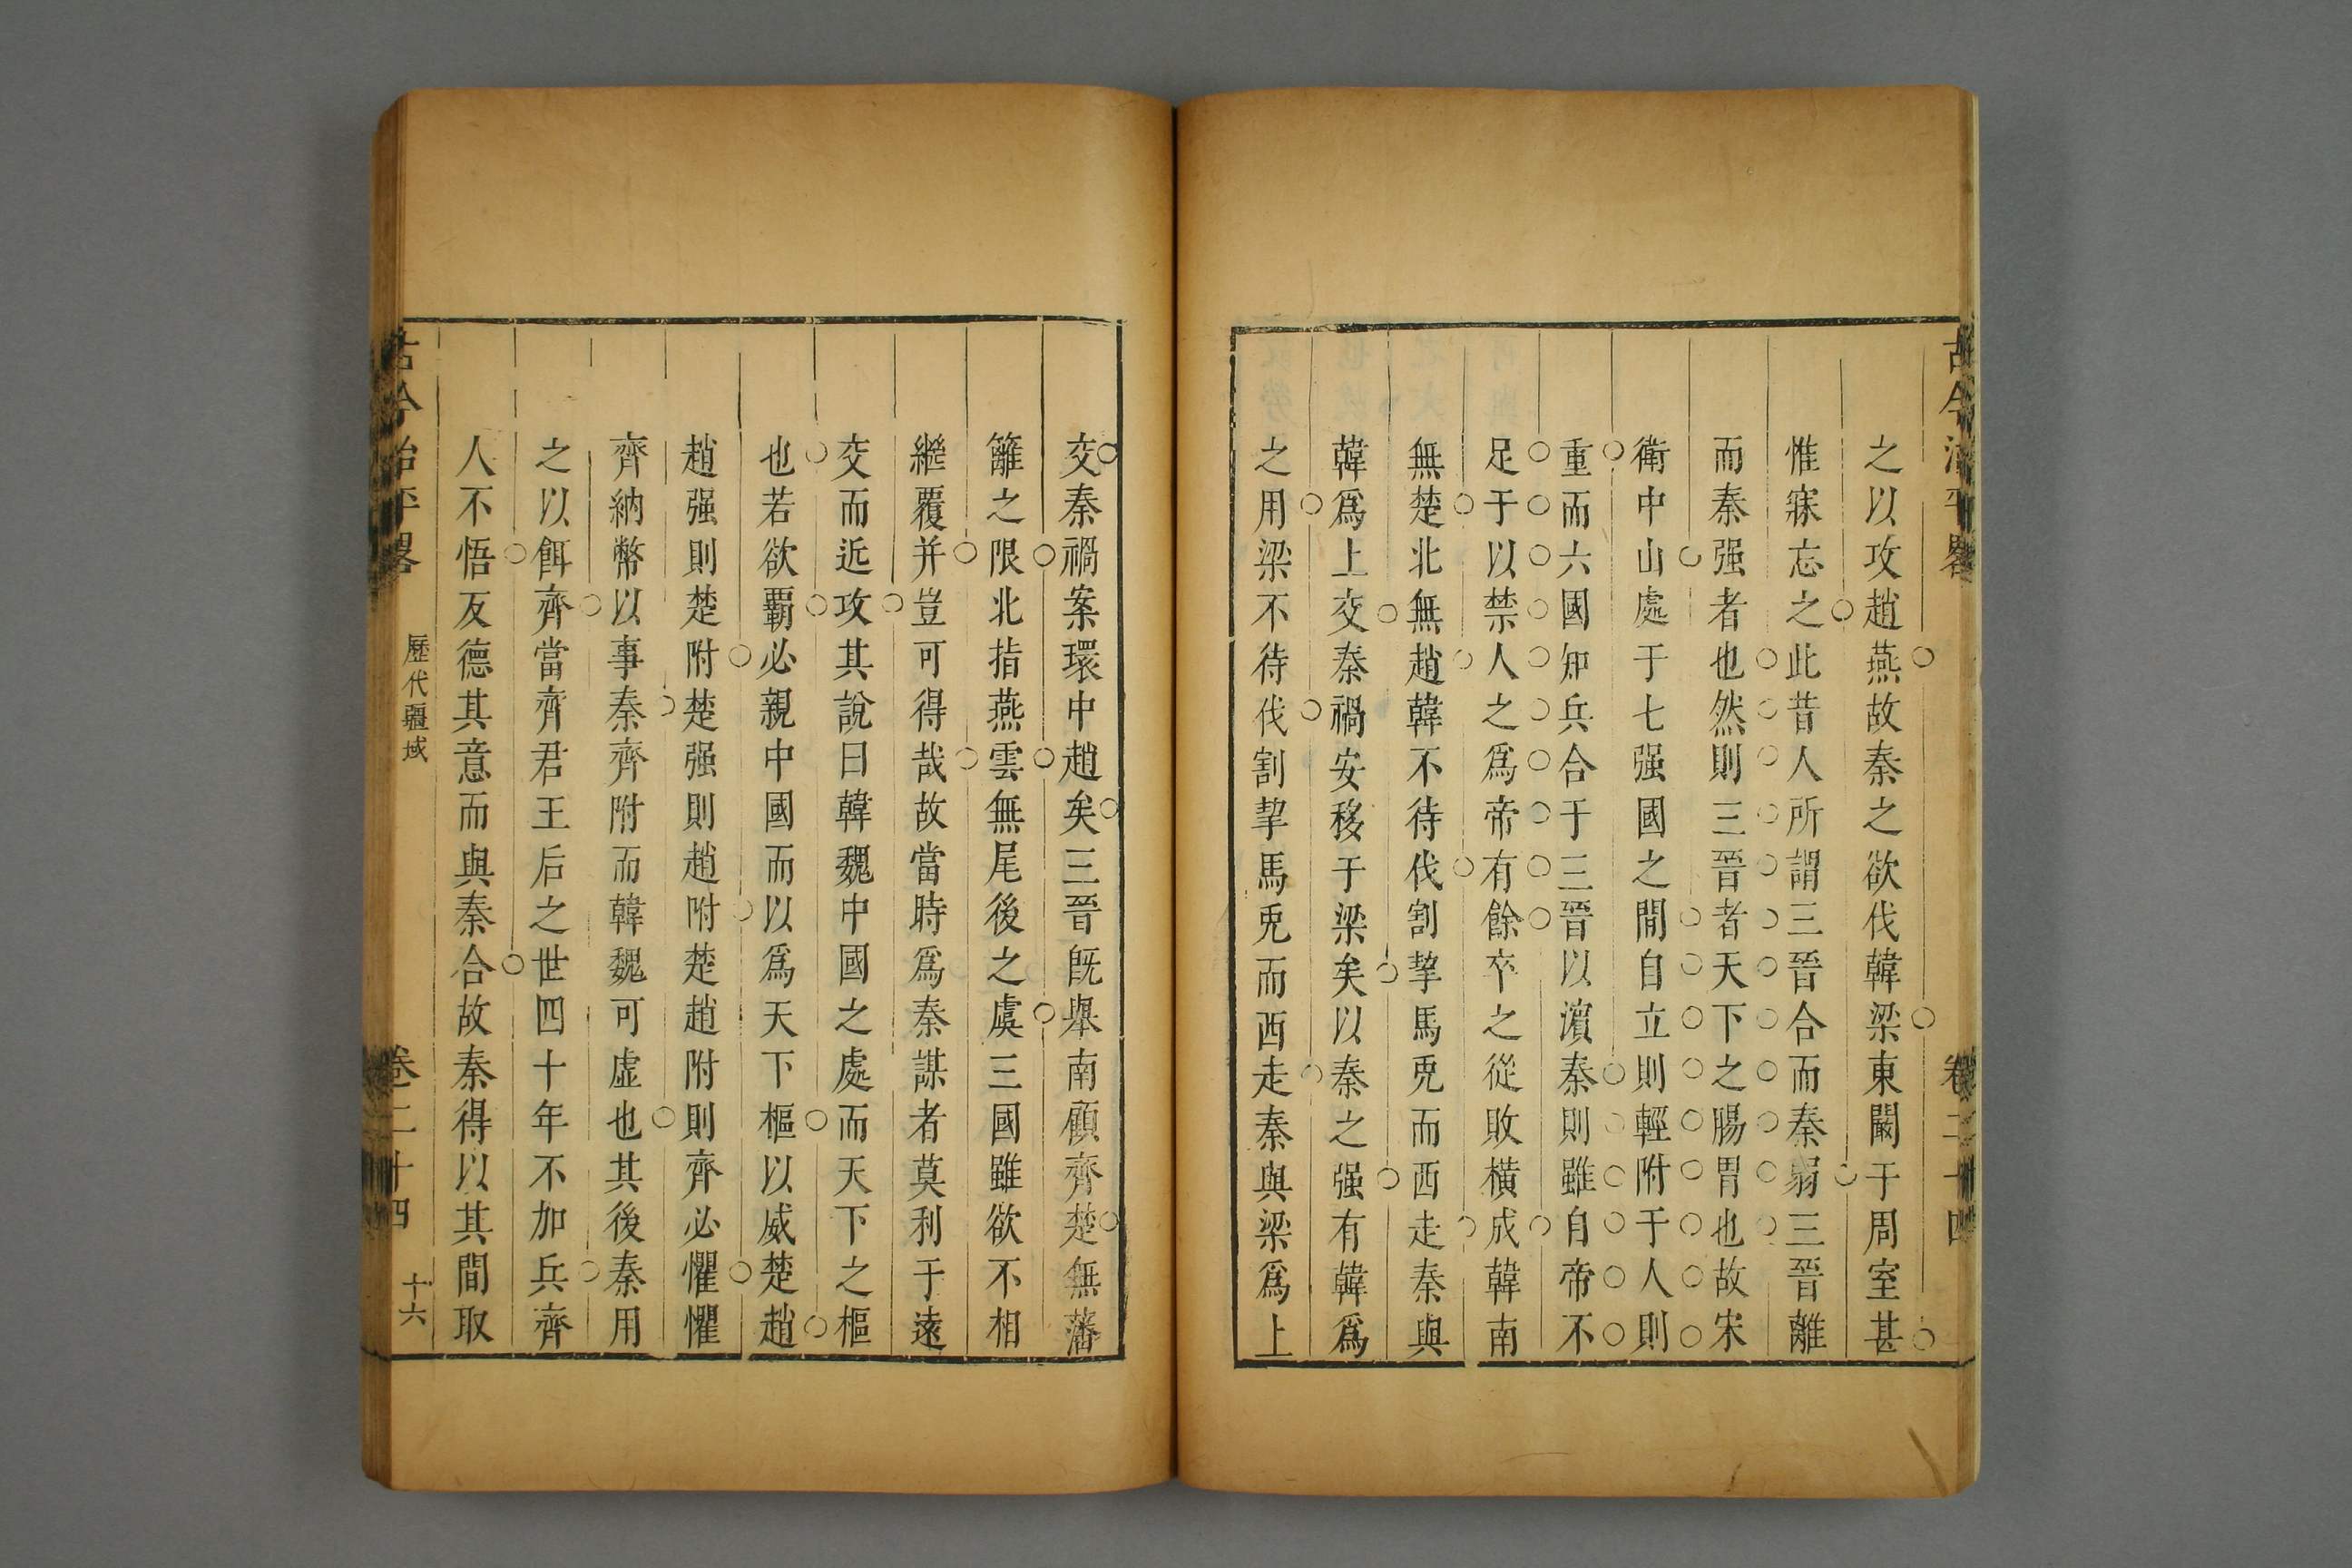 古今治平畧
卷二十四
之以攻趙燕故秦之欲伐韓梁東闚于周室甚
惟寐忘之此昔人所謂三晉合而秦弱三晉離
而秦强者也然則三晉者天下之腸胃也故宋
衛中山處于七强國之間自立則輕附于人則
重而六國知兵合于三晉以濵秦則雖自帝不
足于以禁人之爲帝有餘卒之從敗横成韓南
無楚北無趙韓不待伐割挈馬兎而西走秦與
韓爲上交秦禍安移于梁矣以秦之强有韓爲
之用梁不待伐割挈馬兎而西走秦與梁爲上
交秦禍案環中趙矣三晉既舉南顧齊楚無藩
籬之限北指燕雲無尾後之虞三國雖欲不相
繼覆并豈可得哉故當時爲秦謀者莫利于遠
交而近攻其說曰韓魏中國之處而天下之樞
也若欲覇必親中國而以爲天下樞以威楚趙
趙强則楚附楚强則趙附楚趙附則齊必懼懼
齊納幣以事秦齊附而韓魏可虛也其後秦用
之以餌齊當齊君王后之世四十年不加兵齊
人不悟反德其意而與秦合故秦得以其間取
古今治平畧
歷代疆域
卷二十四
十六